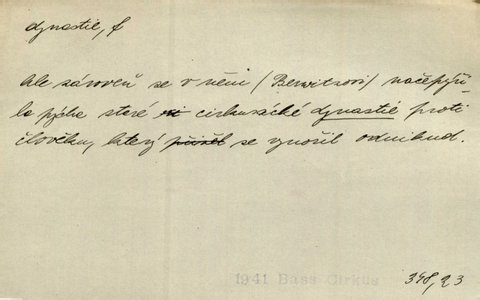 dynastie, f
Ale zároveň se v něm (Berwitzovi) načepýři-
la pýcha staré cirkusácké dynastie proti
člověku, který přišel se vynořil odnikud.
1941 Bass Cirkus
348, 23